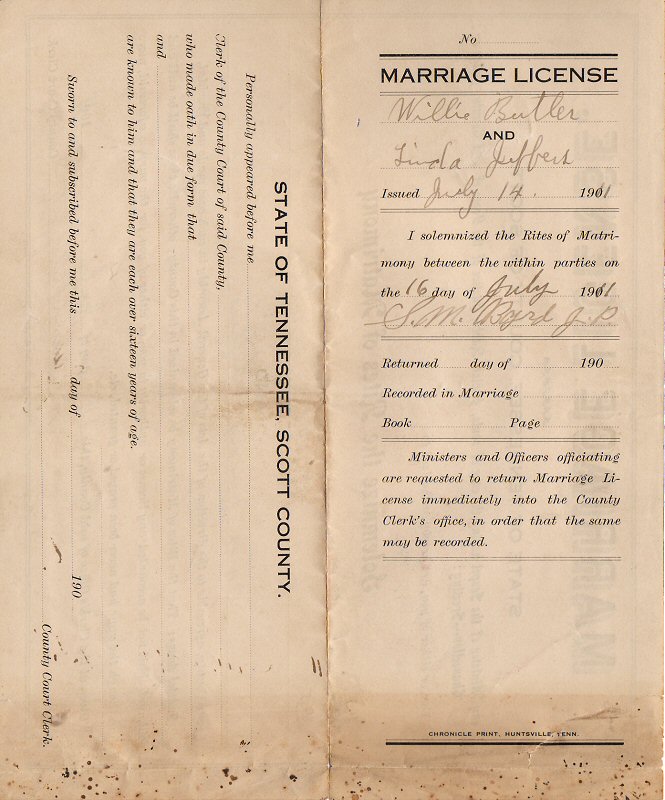 No
MARRIAGE LICENSE
Willie Butler
AND
Linda Jeffers
Issued July 14. 1901
I solemnized the Rites of Matri-
mony between the within parties on
the 16 day of July 1901
S. M. Byrd J. P.
Returned day of 190
Recorded in Marriage
Book Page
Ministers and Officers officiating
are requested to return Marriage Li-
cense immediately into the County
Clerk's office, in order that the same
may be recorded.
CHRONICLE PRINT, HUNTSVILLE, TENN.
STATE OF TENNESSEE, SCOTT COUNTY.
Personally appeared before me
Clerk of the County Court of said County,
who made oath in due form that
and
are known to him and that they are each over sixteen years of age.
Sworn to and subscribed before me this day of 190
County Court Clerk.